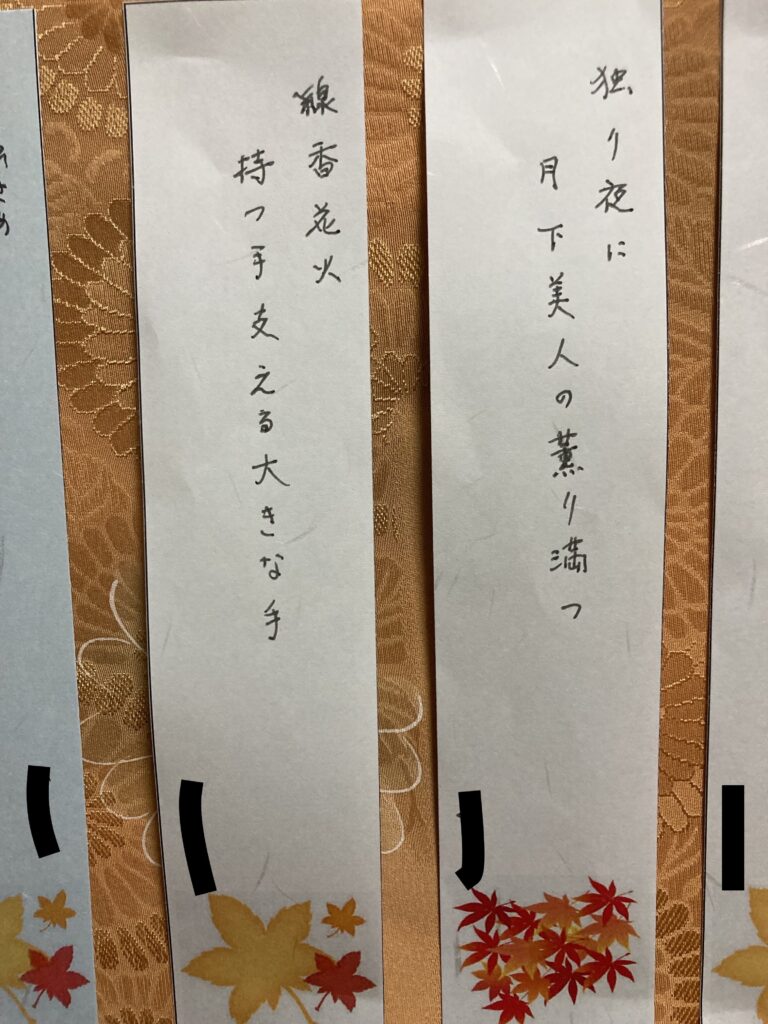 独り夜に
月下美人の薫り満つ
線香花火
持つ手支える大きな手